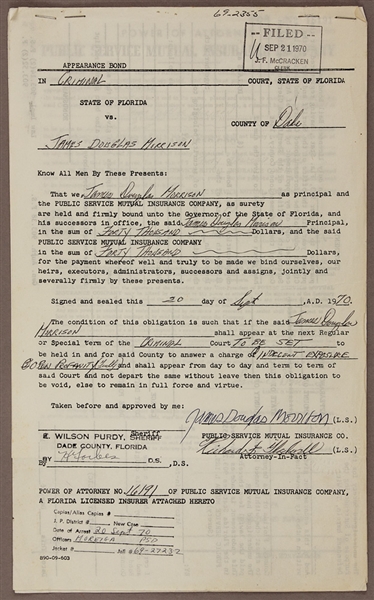 69-2355
FILED
SEP 21 1970
J. F. McCRACKEN
CLERK
APPEARANCE BOND
IN CRIMINAL COURT, STATE OF FLORIDA
STATE OF FLORIDA
vs.
COUNTY OF Dade
JAMES DOUGLAS MORRISON
Know All Men By These Presents:
That we, James Douglas Morrison as principal and
the PUBLIC SERVICE MUTUAL INSURANCE COMPANY, as surety
are held and firmly bound unto the Governor of the State of Florida, and
his successors in office, the said James Douglas Morrison Principal,
in the sum of FORTY THOUSAND Dollars, and the said
PUBLIC SERVICE MUTUAL INSURANCE COMPANY
in the sum of FORTY THOUSAND Dollars,
for the payment whereof well and truly to be made we bind ourselves, our
heirs, executors, administrators, successors and assigns, jointly and
severally firmly by these presents.
Signed and sealed this 20 day of Sept, A.D. 1970.
The condition of this obligation is such that if the said James Douglas
MORRISON shall appear at the next Regular
or Special Term of the CRIMINAL Court TO BE SET
to be held in and for said County to answer a charge of INDECENT EXPOSURE
PROFANITY and shall appear from day to day and term to term
of said Court and not depart the same without leave then this obligation to
be void, else to remain in full force and virtue.
Taken before and approved by me:
James Douglas Morrison (L.S.)
E. WILSON PURDY, Sheriff
DADE COUNTY, FLORIDA
PUBLIC SERVICE MUTUAL INSURANCE CO.
BY D.S. (L.S.)
Attorney-In-Fact
POWER OF ATTORNEY NO. 16191 OF PUBLIC SERVICE MUTUAL INSURANCE COMPANY,
A FLORIDA LICENSED INSURER ATTACHED HERETO
Capias/Alias Capias #
J. P. District # New Case
Date of Arrest 20 Sept 70
Officers MOREIRA PSD
Jacket # Jail # 69-27232
890-09-603